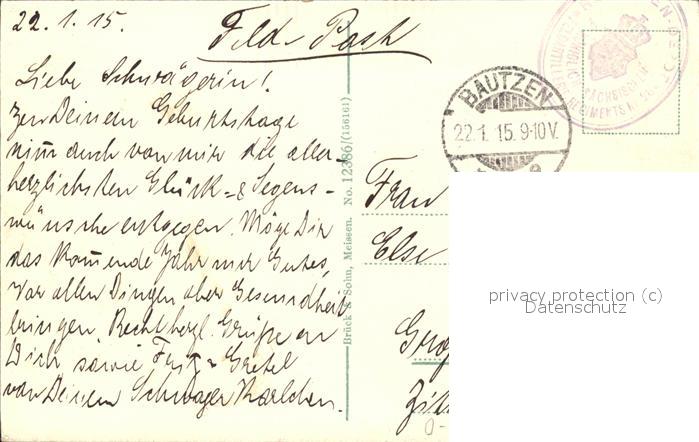 22.1.15.
Feld-Post
Liebe Schwägerin!
Zu Deinem Geburtstage
nim̄ auch von mir die aller-
herzlichsten Glück- & Segens-
wünsche entgegen. Möge Dir
das kom̄ende Jahr nur Gutes,
vor allen Dingen aber Gesundheit
bringen. Recht herzl. Grüße an
Dich sowie Fritz & Gretel
von Deinem Schwager Karlchen.
Brück & Sohn, Meissen. No. 12386/(156161)
BAUTZEN
22.1.15.9-10V.
Frau
Else
privacy protection (c)
Datenschutz